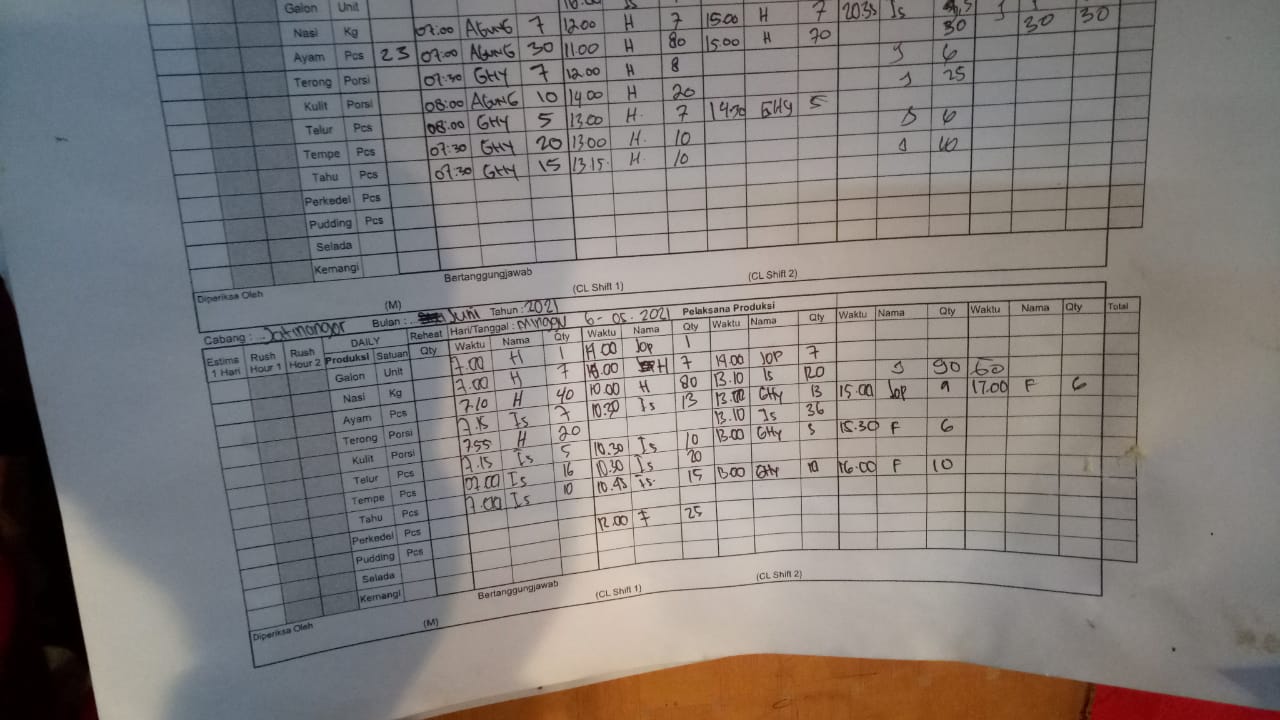 Galon Unit
Nasi Kg 07:00 AGUNG 7 12.00 H 7 15.00 H 7 Is
Ayam Pcs 23 07:00 AGUNG 30 11.00 H 80 15.00 H 70 30 30 30
Terong Porsi 07:30 GHY 7 12.00 H 8 6
Kulit Porsi 08:00 AGUNG 10 14.00 H 20 25
Telur Pcs 08:00 GHY 5 13.00 H. 7 14.30 GHY 5
Tempe Pcs 07:30 GHY 20 13.00 H. 10 6
Tahu Pcs 07:30 GHY 15 13.15 H. 10
Perkedel Pcs
Pudding Pcs
Selada
Kemangi
Diperiksa Oleh (M) Bertanggungjawab (CL Shift 1) (CL Shift 2)
Cabang : Jatinangor Bulan : Juni Tahun : 2021
DAILY Reheat Hari/Tanggal : Minggu 6-05.2021 Pelaksana Produksi
Estima 1 Hari Rush Hour 1 Rush Hour 2 Produksi Satuan Qty Waktu Nama Qty Waktu Nama Qty Waktu Nama Qty Waktu Nama Qty Waktu Nama Qty Total
Galon Unit 7.00 H 1 Jop 1
Nasi Kg 7.00 H 7 H 7 14.00 JOP 7
Ayam Pcs 7.10 H 40 10.00 H 80 13.10 Is 120 90 60
Terong Porsi 7.15 Is 7 10.30 Is 13 GHY 13 15.00 Jop 9 17.00 F 6
Kulit Porsi 755 H 20 13.10 Is 36
Telur Pcs 7.15 Is 5 10.30 Is 10 13.00 GHY 5 15.30 F 6
Tempe Pcs 07.00 Is 16 10.30 Is 20
Tahu Pcs 7.00 Is 10 10.45 Is 15 13.00 GHY 10 16.00 F 10
Perkedel Pcs
Pudding Pcs 12.00 F 25
Selada
Kemangi
Diperiksa Oleh (M) Bertanggungjawab (CL Shift 1) (CL Shift 2)